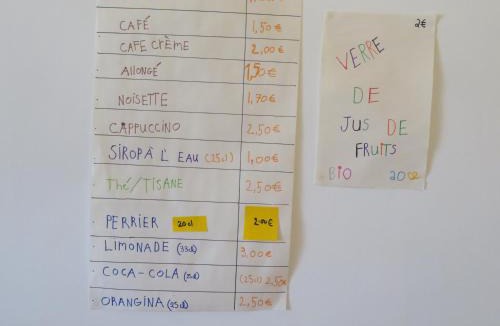 CAFÉ 1,50€
CAFE CRÈME 2,00€
Allongé 1,50€
NOISETTE 1,70€
CAPPUCCINO 2,50€
SIROP À L'EAU (25cl) 1,00€
Thé/TISANE 2,50€
PERRIER 20cl 2.00€
LIMONADE (33cl) 3,00€
COCA-COLA (25cl) (25cl) 2,50€
ORANGINA (25cl) 2,50€
2€
VERRE
DE
JUS DE
FRUITS
BIO 20cl